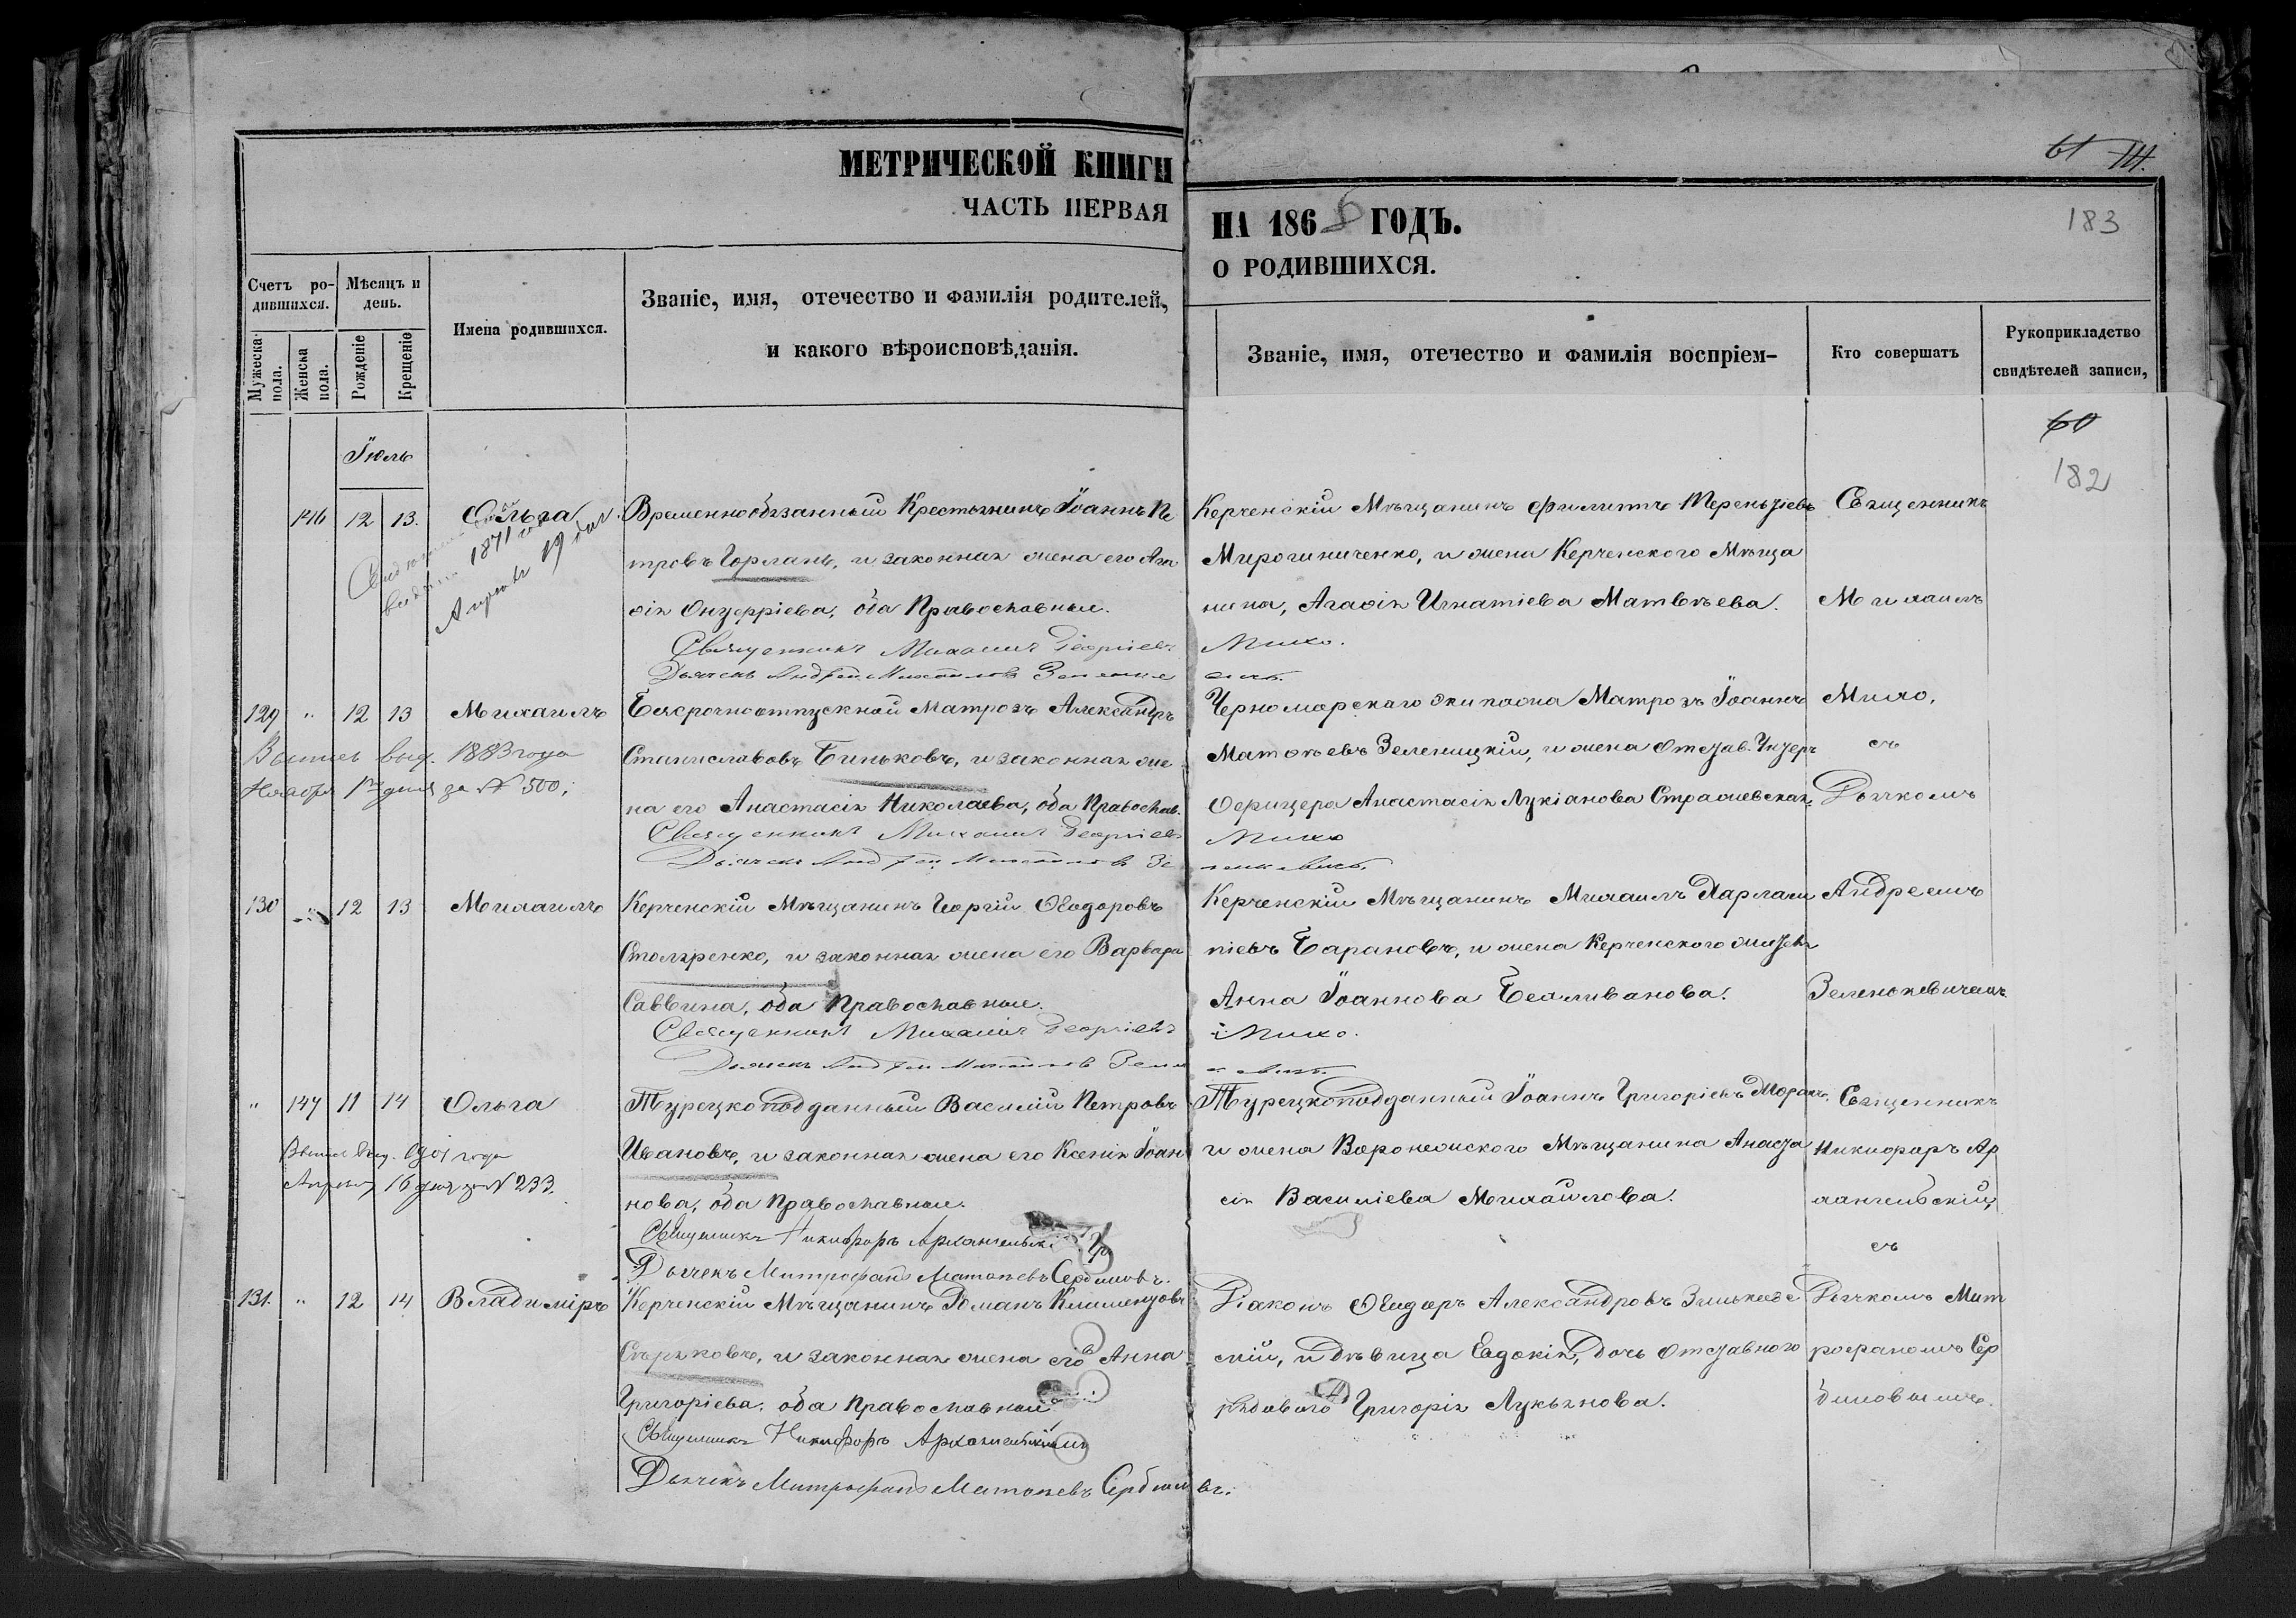 МЕТРИЧЕСКОЙ КНИГИ
ЧАСТЬ ПЕРВАЯ
Счетъ ро-
дившихся.
Мѣсяцъ и
день.
Мужеска
пола.
Женска
пола.
Рожденіе
Крещеніе
Имена родившихся.
Званіе, имя, отечество и фамилія родителей,
и какого вѣроисповѣданія.
Іюль
146 12 13. Ольга
1871
Апрѣля 19 дня
Временнообязанный Крестьянинъ Іоаннъ Пе
тровъ Горланъ, и законная жена его Ага
ѳія Онуфріева, оба Православные.
Священникъ Михаилъ Георгіевъ
Дьячекъ Андрей Михайловъ
129 " 12 13 Михаилъ
Выпись выд. 1883 года
Ноября 1го дня за № 500;
Безсрочноотпускной Матросъ Александръ
Станиславовъ Биньковъ, и законная же
на его Анастасія Николаева, оба Православ.
Священникъ Михаилъ Георгіевъ
Дьячекъ Андрей Михайловъ Зе
130 " 12 13 Михаилъ
Керченскій Мѣщанинъ Георгій Ѳеодоровъ
Столяренко, и законная жена его Варвара
Саввина, оба Православные.
Священникъ Михаилъ Георгіевъ
Дьячекъ Андрей Михайловъ
" 147 11 14 Ольга
Выпись выд. 1901 года
Апрѣля 16 дня за № 233.
Турецкоподданный Василій Петровъ
Ивановъ, и законная жена его Ксенія Іоан
нова, оба Православные.
Священникъ Никифоръ Архангельскій
Дьячекъ Митрофанъ Матвѣевъ Сербиновъ.
131. " 12 14 Владиміръ
Керченскій Мѣщанинъ Романъ Климентовъ
Сѣряковъ, и законная жена его Анна
Григоріева, оба Православные
Священникъ Никифоръ Архангельскій
Дьячекъ Митрофанъ Матвѣевъ Сербинов
въ.
61
183
НА 1868 ГОДЪ.
О РОДИВШИХСЯ.
Званіе, имя, отечество и фамилія воспріем-
Кто совершалъ
Рукоприкладство
свидѣтелей записи,
60
182
Керченскій Мѣщанинъ Филиппъ Терентіевъ
Мирошниченко, и жена Керченского Мѣща
нина, Агафія Игнатіева Матвѣева.
Михо.
Черноморскаго экипажа Матрозъ Іоаннъ
Матвѣевъ Зеленицкій, и жена Отстав. Унтеръ
Офицера Анастасія Лукіанова Страшевская.
Михо
Керченскій Мѣщанинъ Михаилъ Харлам
піевъ Барановъ, и жена Керченского жителя
Анна Іоаннова Беаливанова.
Михо.
Турецкоподданный Іоаннъ Григоріевъ
и жена Воронежского Мѣщанина Анаста
сія Василіева Михайлова.
Діаконъ Ѳеодоръ Александровъ
скій, и дѣвица Евдокія, дочь Отставного
рядового Григорія Лукьянова.
Священникъ
Михаилъ
Михо,
съ
Дьячкомъ
Андреемъ
Зеленкевичемъ.
Священникъ
Никифоръ Ар
хангельскій,
съ
Дьячкомъ Мит
рофаномъ Сер
биновымъ.